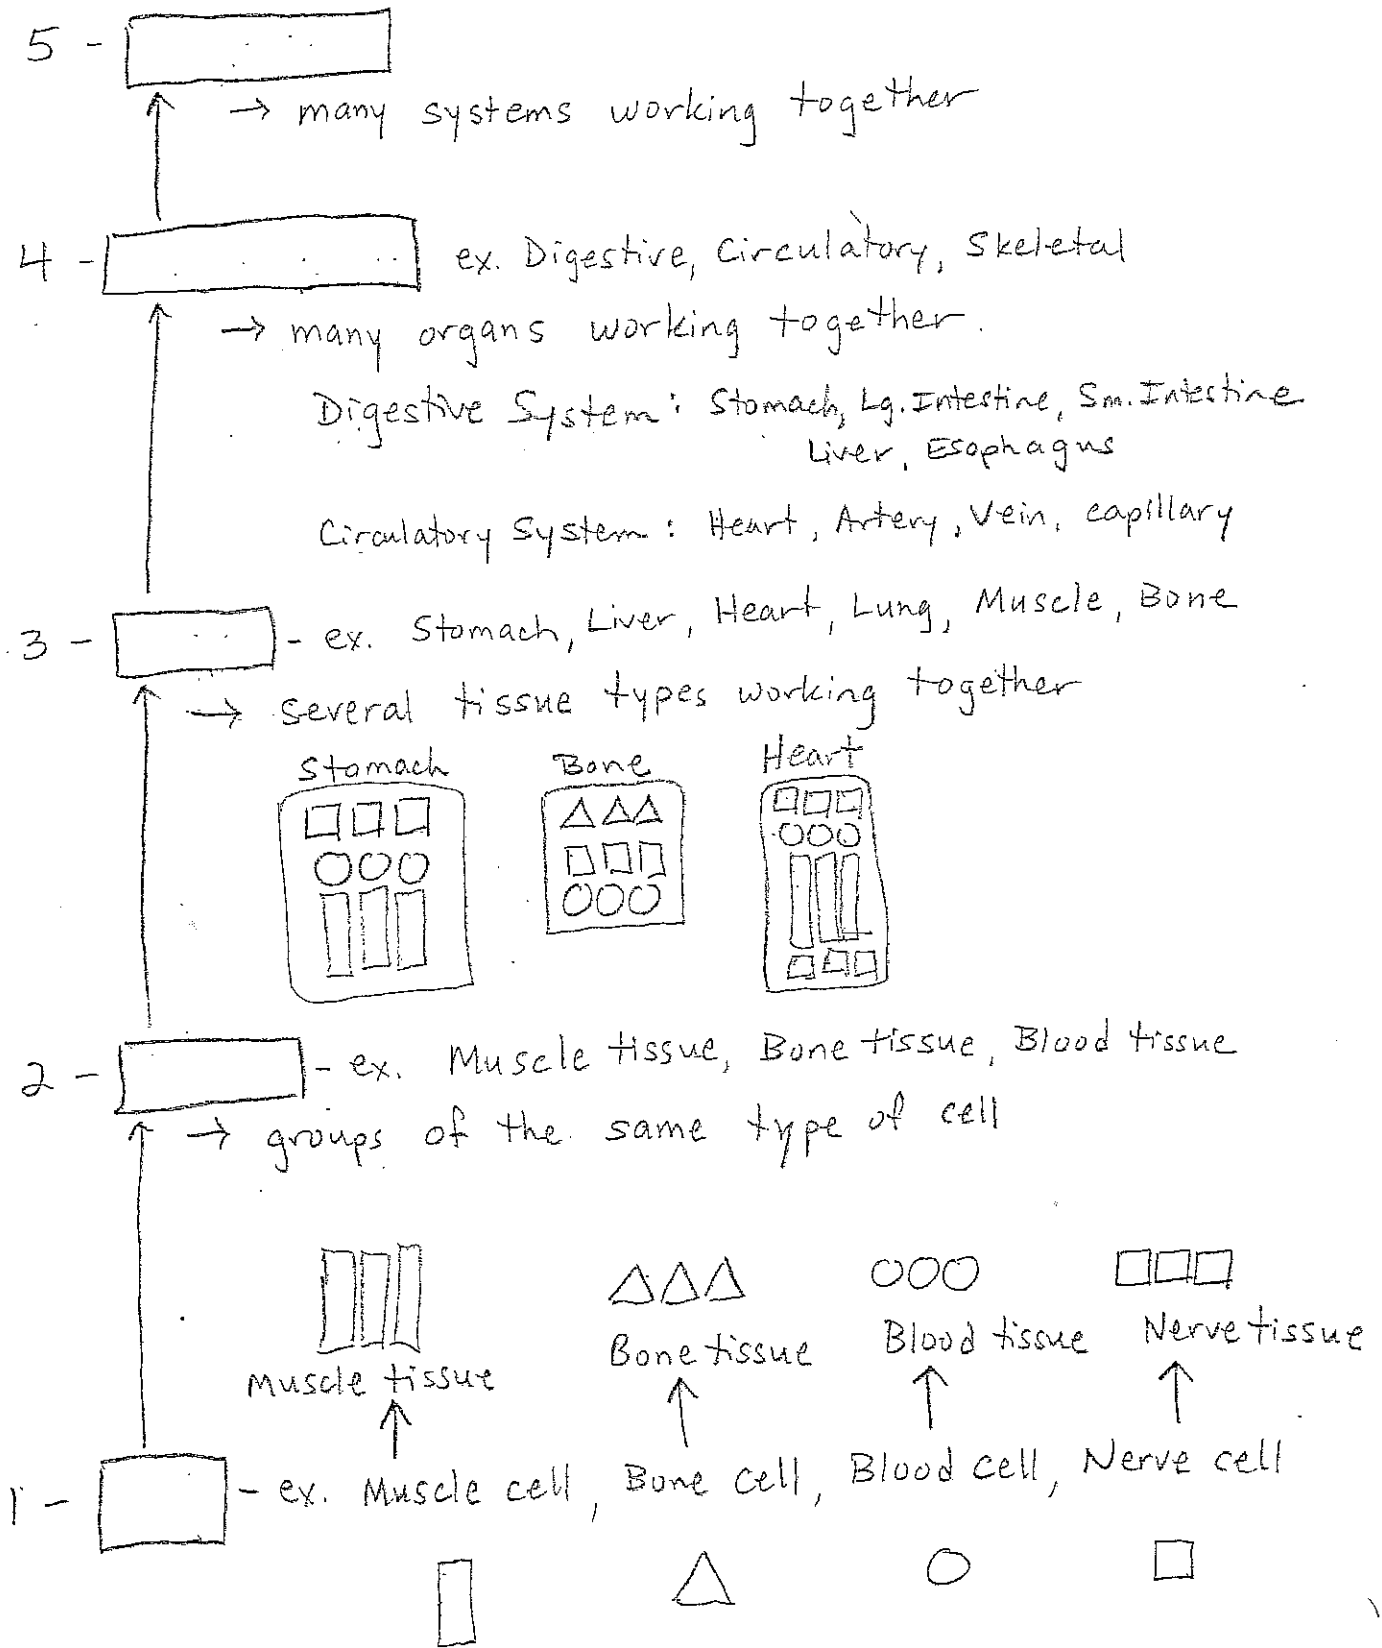 5 -
→ many systems working together
4 - ex. Digestive, Circulatory, Skeletal
→ many organs working together.
Digestive System: Stomach, Lg. Intestine, Sm. Intestine
Liver, Esophagus
Circulatory System: Heart, Artery, Vein, capillary
3 - - ex. Stomach, Liver, Heart, Lung, Muscle, Bone
→ several tissue types working together
Stomach Bone Heart
2 - - ex. Muscle tissue, Bone tissue, Blood tissue
→ groups of the same type of cell
Muscle tissue Bone tissue Blood tissue Nerve tissue
1 - - ex. Muscle cell, Bone cell, Blood cell, Nerve cell